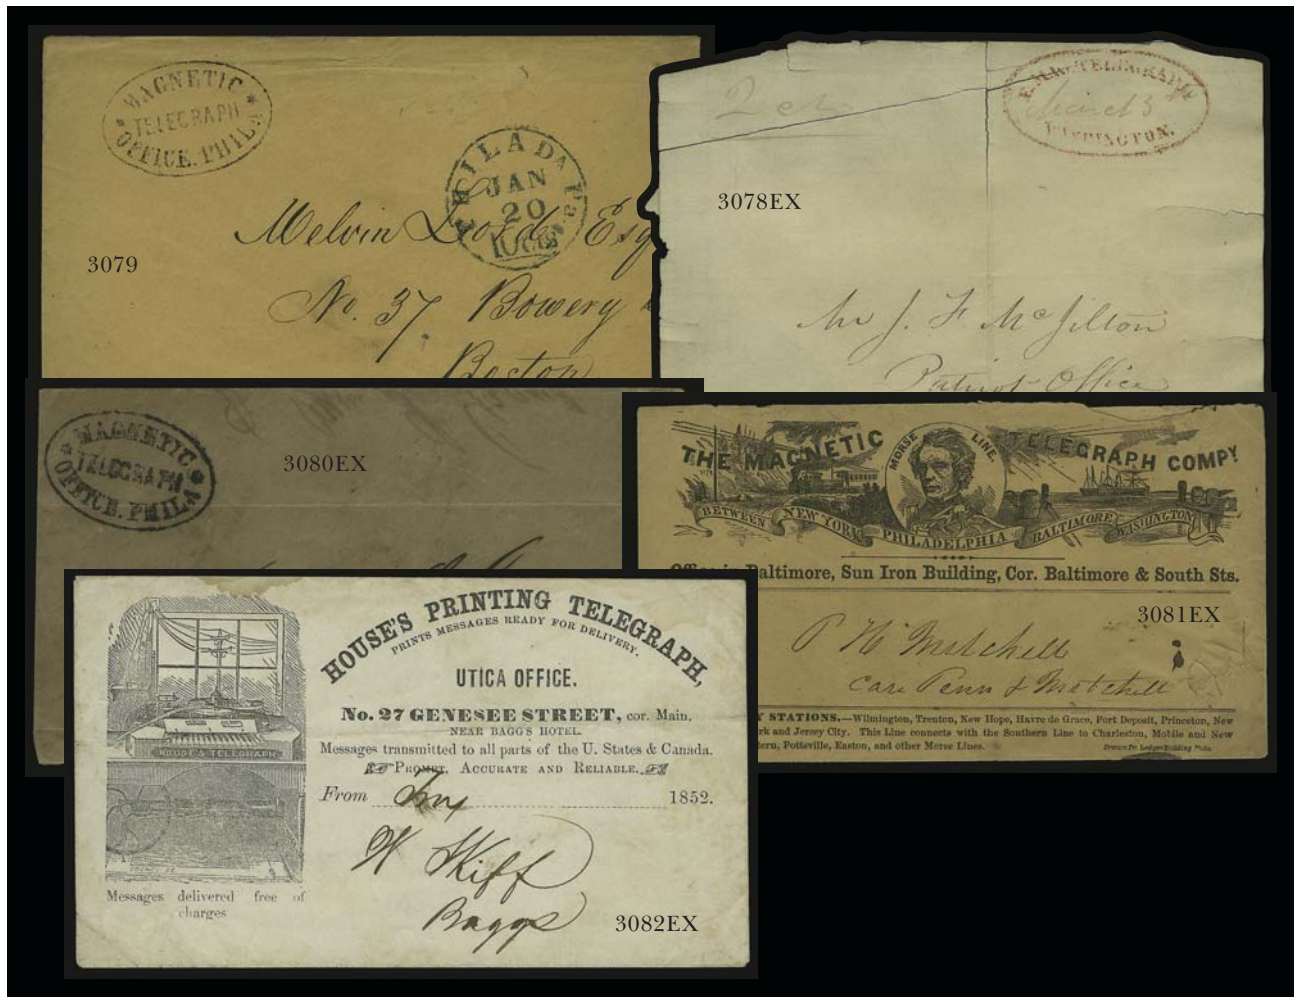 MAGNETIC
TELEGRAPH
OFFICE. PHILA
PHILADA Pa.
JAN
20
10 cts
Melvin Lord, Esq
No. 37 Bowery
Boston
3079
2 cts
E. MAG. TELEGRAPH
March 3
WASHINGTON.
3078EX
Mr J. F. McJilton
Patriot Office
MAGNETIC
TELEGRAPH
OFFICE. PHILA
3080EX
THE MAGNETIC TELEGRAPH COMPY
MORSE LINE.
BETWEEN NEW YORK PHILADELPHIA BALTIMORE WASHINGTON
Office in Baltimore, Sun Iron Building, Cor. Baltimore & South Sts.
3081EX
P H Mitchell
Care Penn & Mitchell
Y STATIONS.—Wilmington, Trenton, New Hope, Havre de Grace, Port Deposit, Princeton, New
rk and Jersey City. This Line connects with the Southern Line to Charleston, Mobile and New
tern, Pottsville, Easton, and other Morse Lines.
Ledger Building Phila.
HOUSE'S PRINTING TELEGRAPH,
PRINTS MESSAGES READY FOR DELIVERY.
UTICA OFFICE.
No. 27 GENESEE STREET, cor. Main,
NEAR BAGG'S HOTEL.
Messages transmitted to all parts of the U. States & Canada.
PROMPT, ACCURATE AND RELIABLE.
From Troy 1852.
W Skiff
Baggs
HOUSE'S TELEGRAPH
Messages delivered free of
charges
3082EX